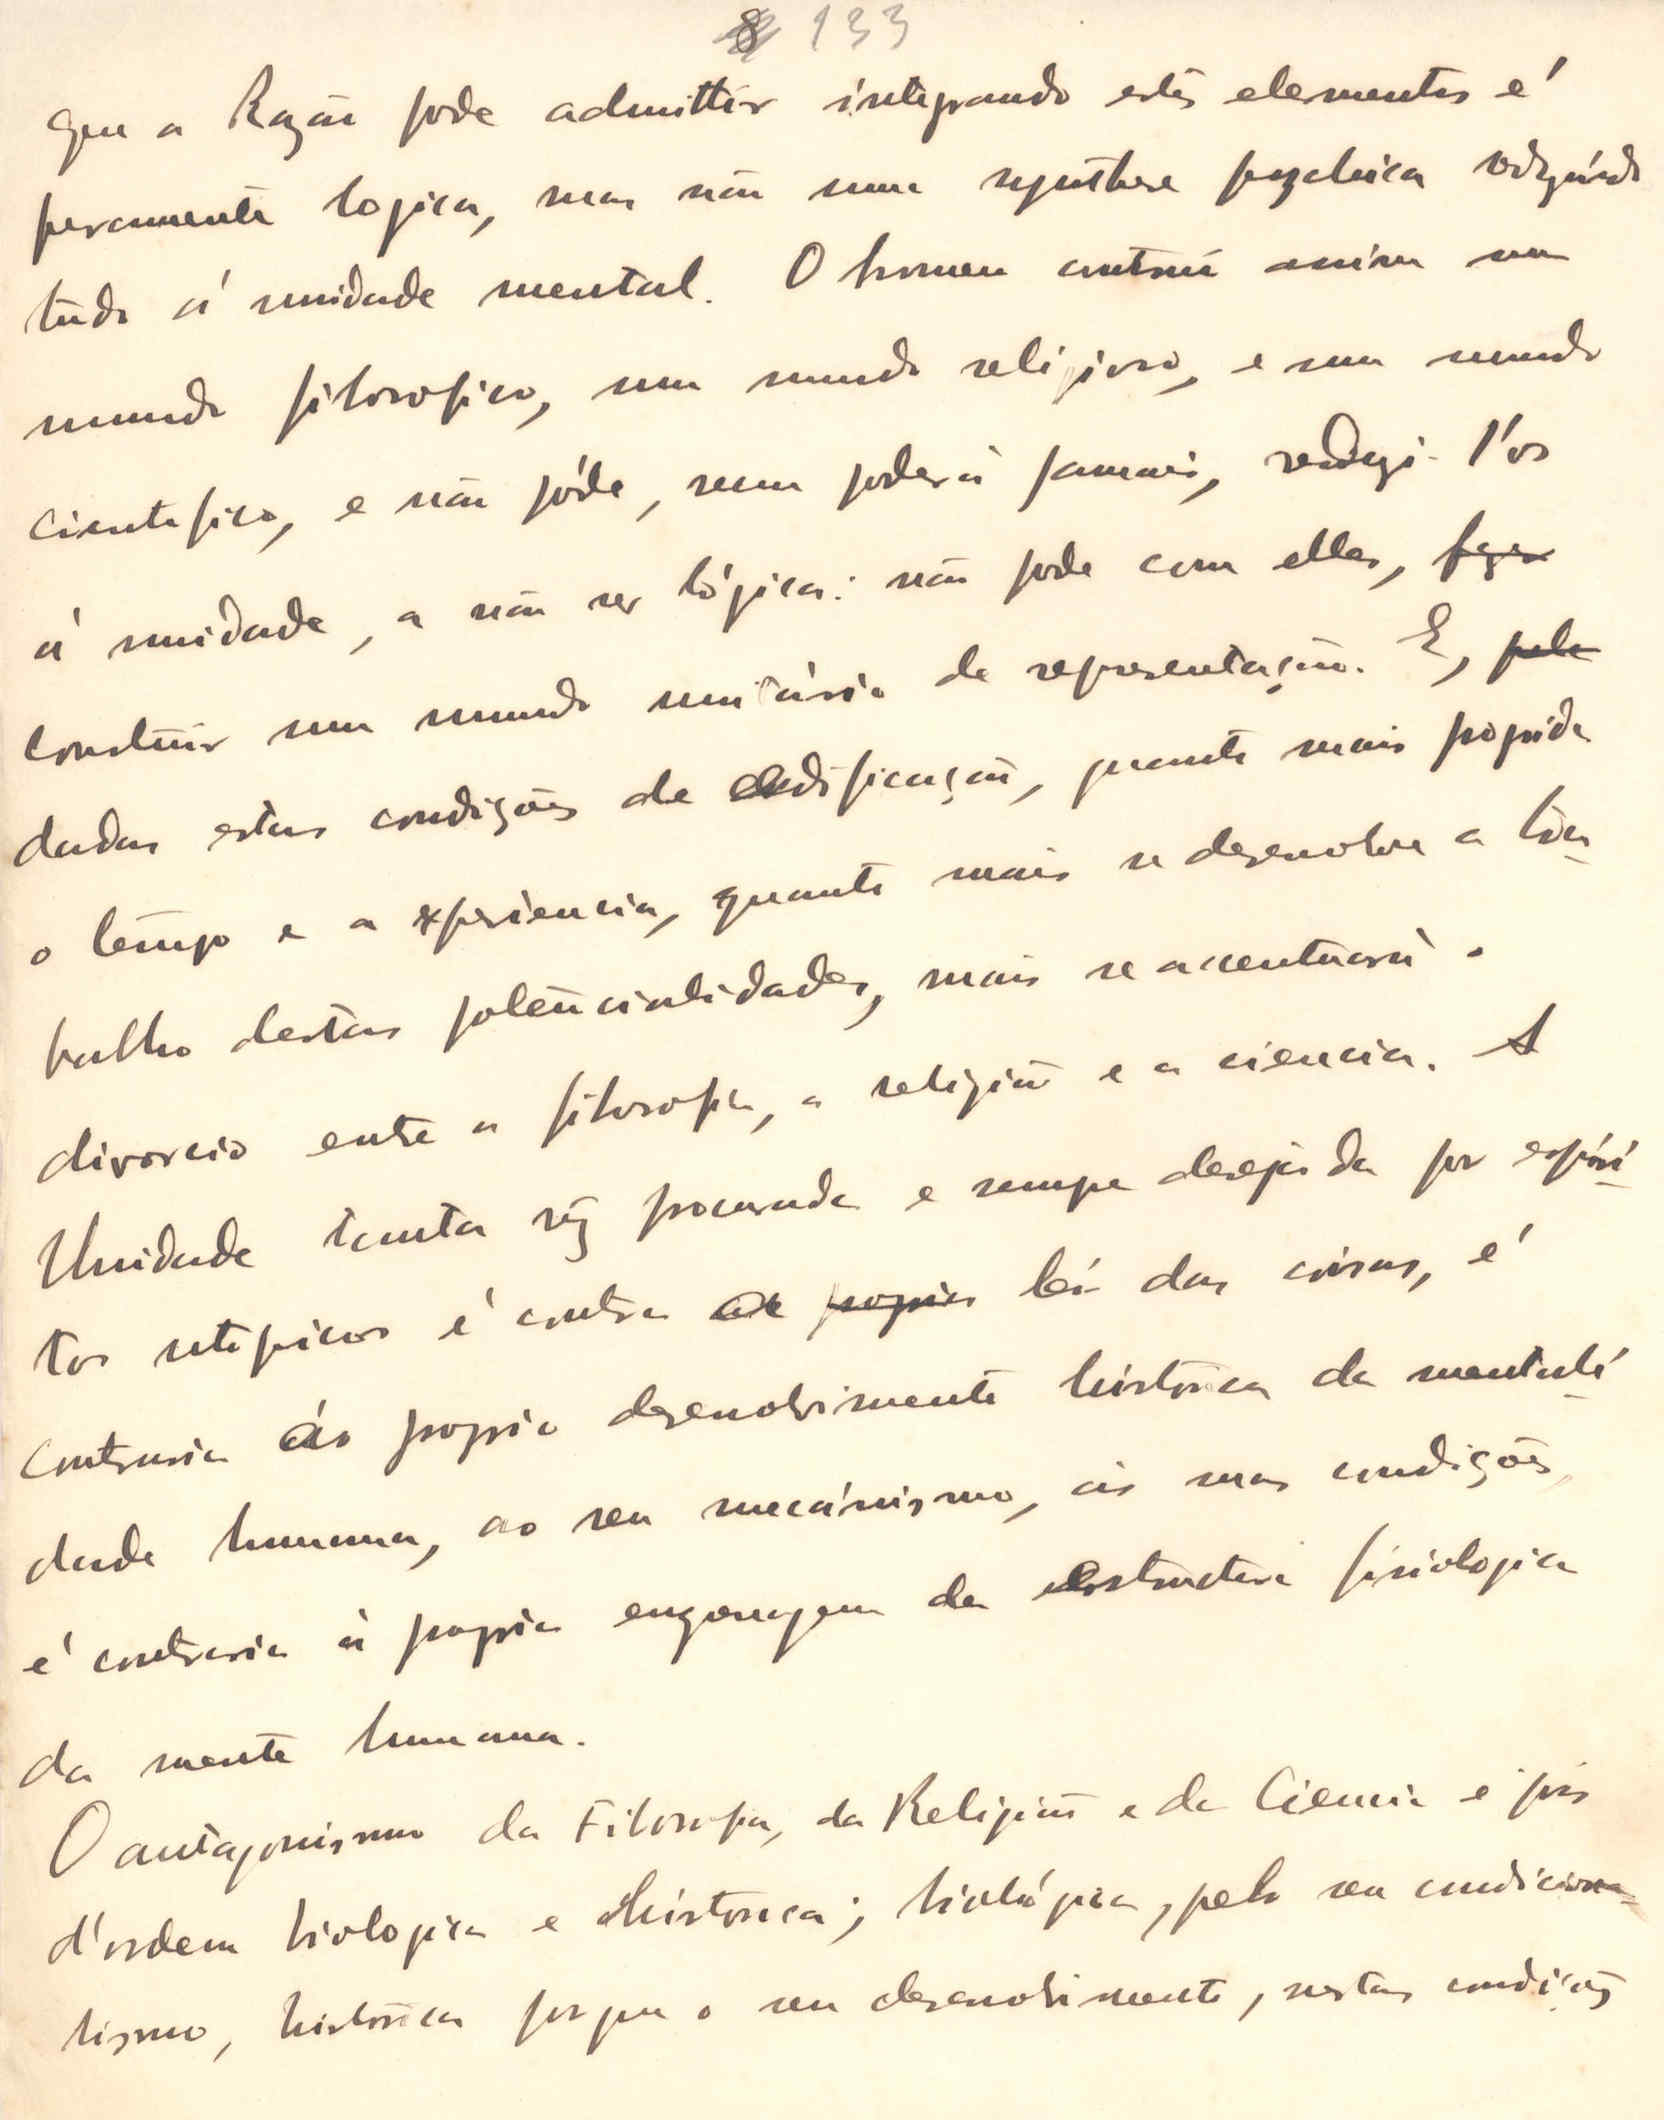 8 133
que a Razão pode admittir integrando estes elementos é
puramente logica, mas não uma synthese psychica reduzindo
tudo á unidade mental. O homem contrúi assim um
mundo filosofico, um mundo religioso, e um mundo
cientifico, e não póde, nem poderá jamais, reduzi-l'os
á unidade, a não ser lógica: não pode com elles, fazer
construir um mundo unitário de representação. E, pela
dadas estas condições de edificação, quanto mais progride
o tempo e a experiencia, quanto mais se desenvolve a tra-
balho destas potencialidades, mais se accentuará o
divorcio entre a filosofia, a religião e a ciencia. A
Unidade tanta vez procurada e sempre desejada por espiri-
tos utopicos é contra a propria lei das coisas, é
contraria ao proprio desenvolvimento histórico da mentali-
dade humana, ao seu mecánismo, ás suas condições,
é contraria á propria engrenagem da estructura fisiologica
da mente humana.
O antagonismo da Filosofia, da Religião e da Ciencia é pois
d'ordem biologica e historica; biológica, pelo seu condiciona-
lismo, histórica porque o seu desenvolvimento, nestas condições